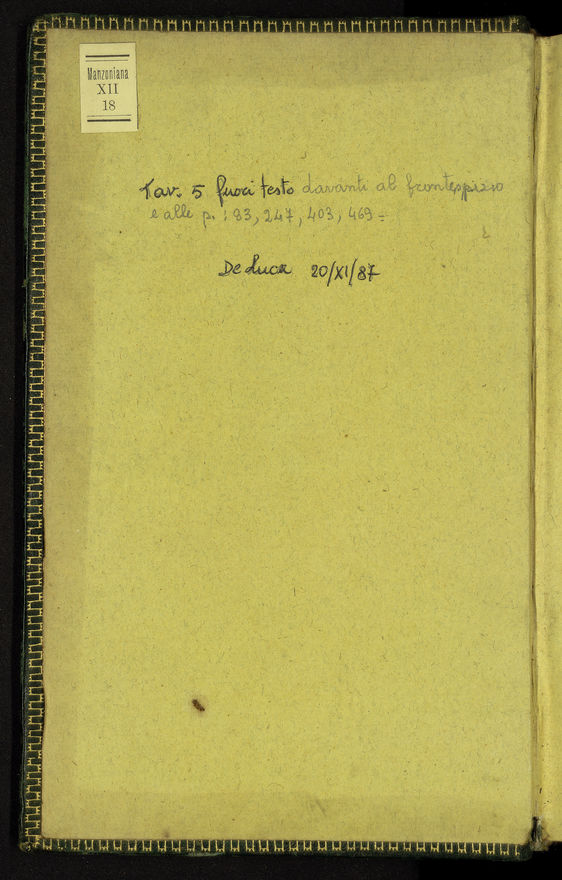 Manzoniana
XII
18
Tav. 5 fuori testo davanti al frontespizio
e alle p.: 83, 247, 403, 469 =
De Luca 20/XI/87